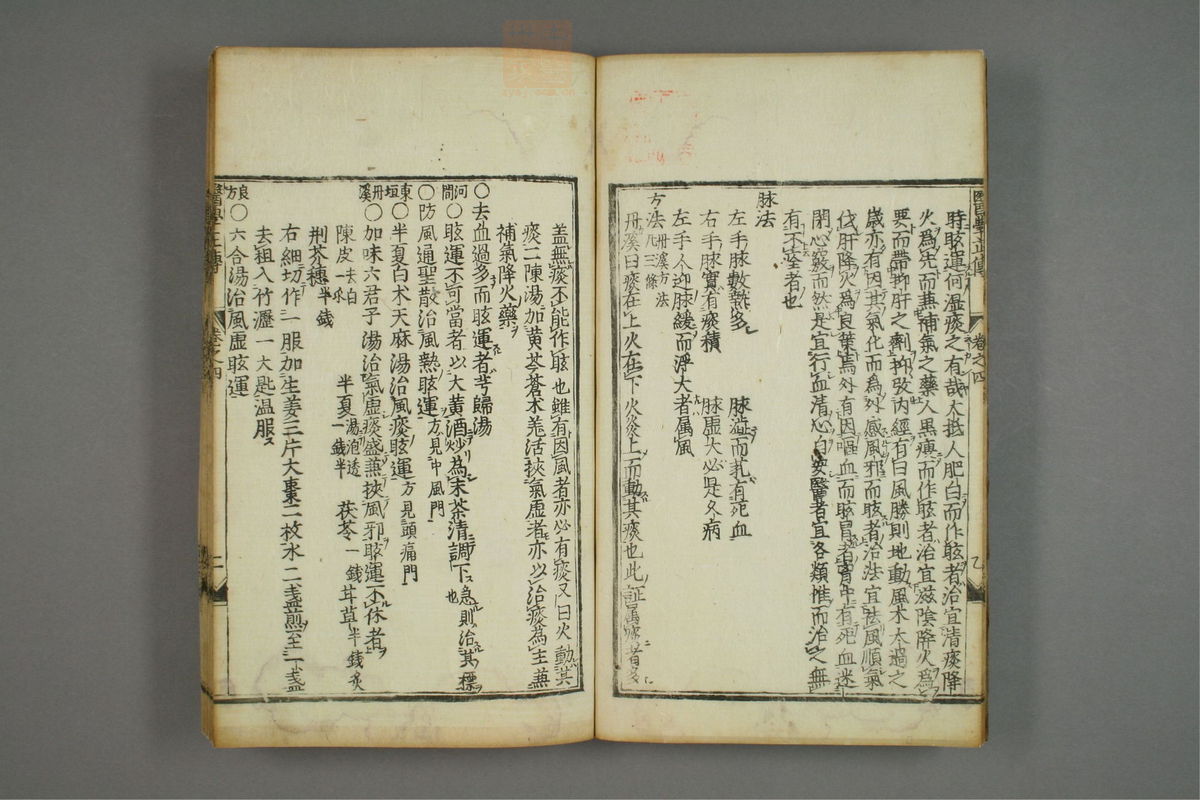 時眩運何湿痰之有哉大抵人肥白而作眩者治宜清痰降
火為先而兼補氣之藥人黒瘦而作眩者治宜滋陰降火為
要而帶抑肝之劑抑攷内經有曰風勝則地動風木太過之
歳亦有因其氣化而為外感風邪而眩者治法宜祛風順氣
伐肝降火為良策焉外有因嘔血而眩冒者胷中有死血迷
閉心竅而然是宜行血清心自安醫者宜各類推而治之無
有不痊者也
脉法
左手脉數熱多 脉澁而芤有死血
右手脉實有痰積 脉虚大必是久病
左手人迎脉緩而浮大者属風
方法 丹溪方法凡三條
丹溪曰痰在上火在下火炎上而動其痰也此証属痰者多
蓋無痰不能作眩也雖有因風者亦必有痰又曰火動其
痰二陳湯加黄芩蒼朮羌活挾氣虚者亦以治痰為主兼
補氣降火藥
○去血過多而眩運者芎歸湯
河間○眩運不可當者以大黄酒炒為末茶清調下急則治其標也
○防風通聖散治風熱眩運方見中風門
東垣○半夏白朮天麻湯治風痰眩運方見頭痛門
丹溪○加味六君子湯治氣虚痰盛兼挾風邪眩運不休者
陳皮去白 半夏一錢半湯泡透 茯苓一錢 甘草半錢炙
荆芥穗半錢
右細切作一服加生姜三片大棗二枚水二盞煎至一盞
去粗入竹瀝一大匙温服
良方○六合湯治風虚眩運
醫學正傳 卷之四